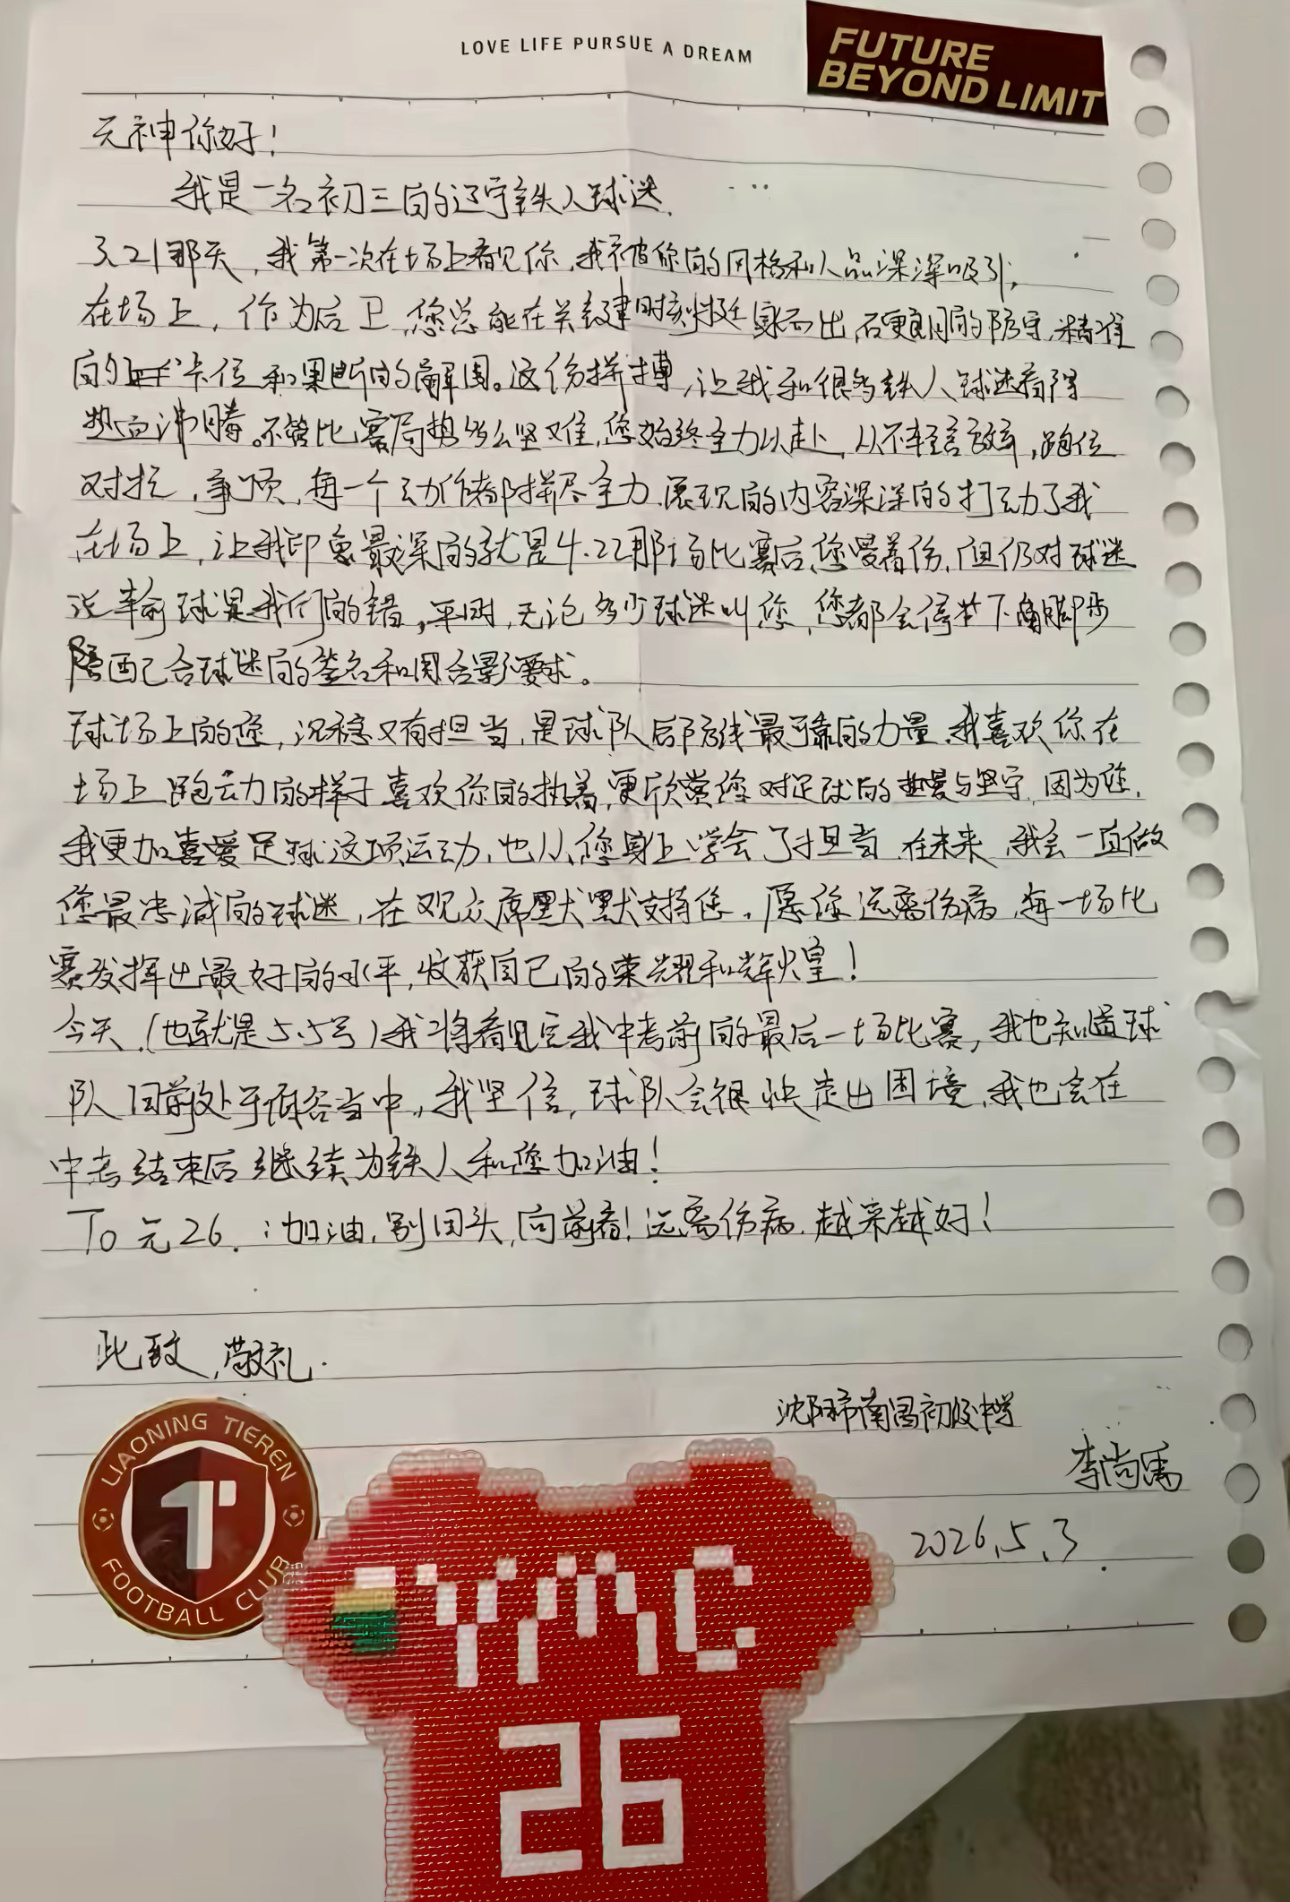 LOVE LIFE PURSUE A DREAM
FUTURE
BEYOND LIMIT
元神你好！
我是一名初三的辽宁铁人球迷.
3.21那天，我第一次在场上看见你，我被你的风格和人品深深吸引，
在场上，作为后卫，您总能在关键时刻挺身而出，石更朗的防守，精准
的卡位和果断的解围。这份拼搏，让我和很多铁人球迷看得
热血沸腾。不管比赛局势多么坚难，您始终全力以赴，从不轻言放弃，跑位
对抗，争顶，每一个动作都拼尽全力.展现的内容深深的打动了我
在场上，让我印象最深的就是4.22那场比赛后，您噯着伤，但仍对球迷
说输球是我们的错，平时，无论多少球迷叫您，您都会停下脚步
陪配合球迷的签名和合影要求。
球场上的您，沉稳又有担当，是球队后防线最可靠的力量，我喜欢你在
场上跑动的样子喜欢你的执着，更欣赏您对足球的热爱与坚守，因为您，
我更加喜爱足球这项运动，也从您身上学会了担当，在未来，我会一直做
您最忠诚的球迷，在观众席默默支持您，愿您远离伤病，每一场比
赛发挥出最好的水平，收获自己的荣耀和辉煌！
今天，(也就是5.5号)我将看见完我中考前的最后一场比赛，我也知道球
队目前处于低谷当中，我坚信，球队会很快走出困境，我也会在
中考结束后继续为铁人和您加油！
To 元26.：加油，别回头，向前看！远离伤病.越来越好！
此致，敬礼.
沈阳市南昌初级中学
李尚禹
2026.5.3
LIAONING TIEREN
FOOTBALL CLUB
YMC
26